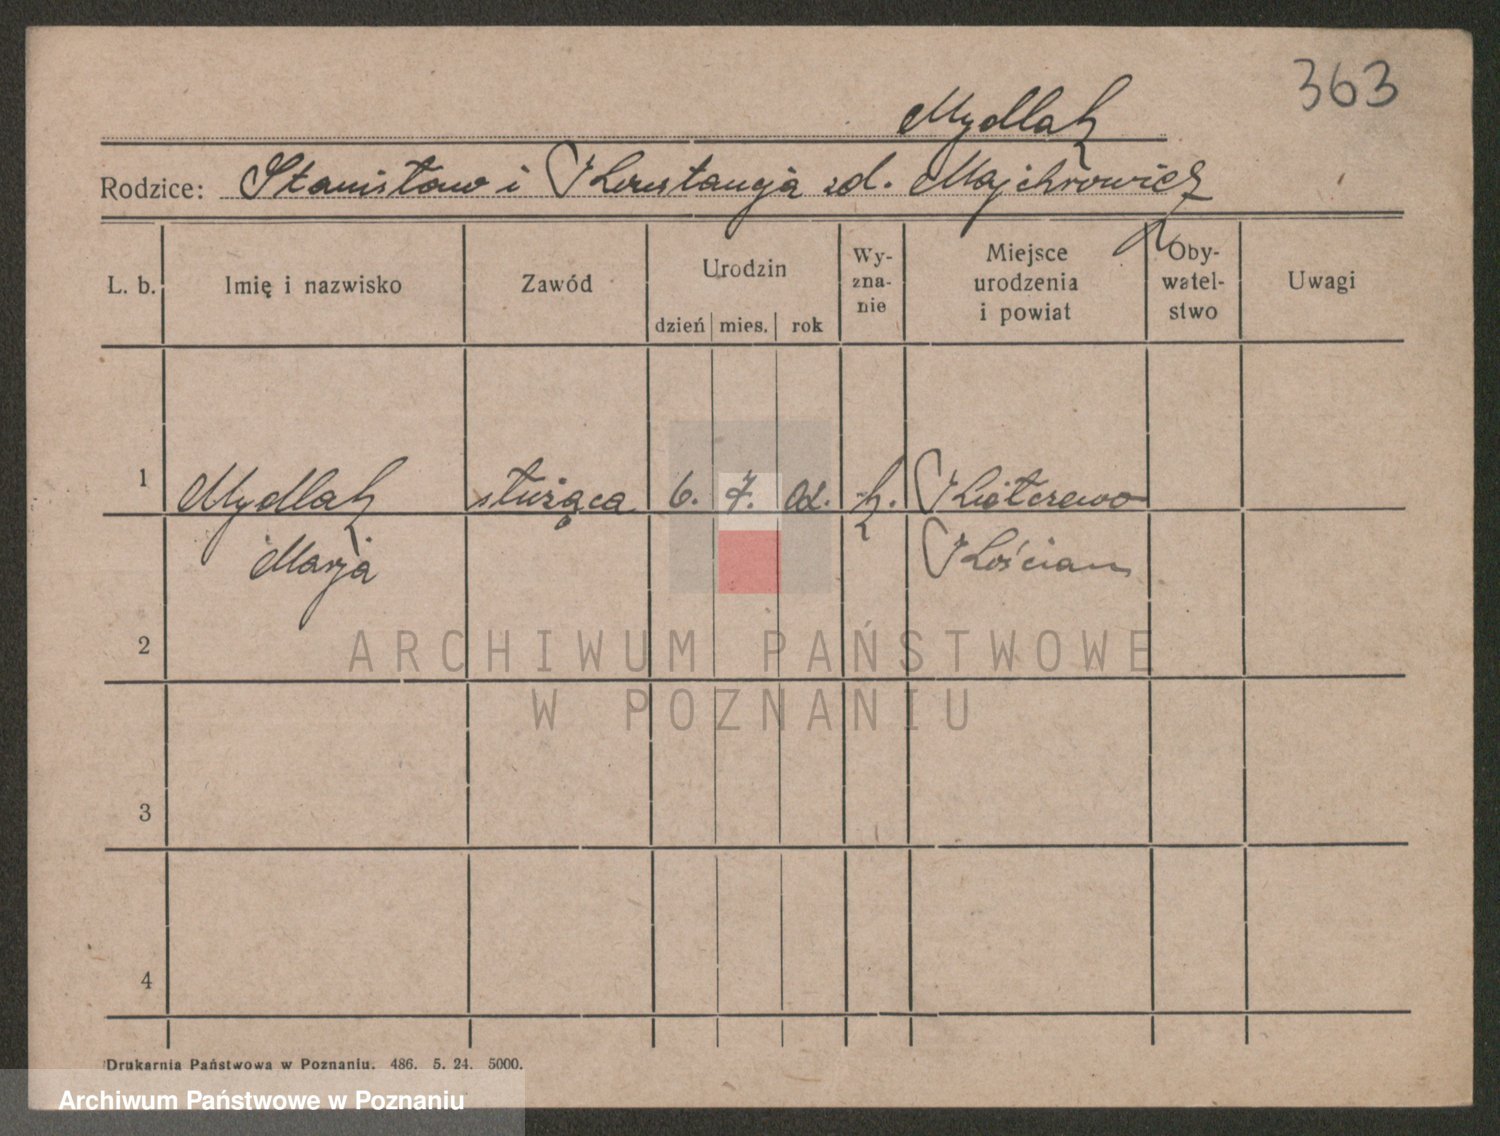 363
Mydlak
Rodzice: Stanisław i Konstancja zd. Majchrowicz
L. b. Imię i nazwisko Zawód Urodzin dzień mies. rok Wy-zna-nie Miejsce urodzenia i powiat Oby-watel-stwo Uwagi
1 Mydlak służąca 6. 7. k.
Marja Kościan
2
3
4
ARCHIWUM PAŃSTWOWE
W POZNANIU
Drukarnia Państwowa w Poznaniu. 486. 5. 24. 5000.
Archiwum Państwowe w Poznaniu